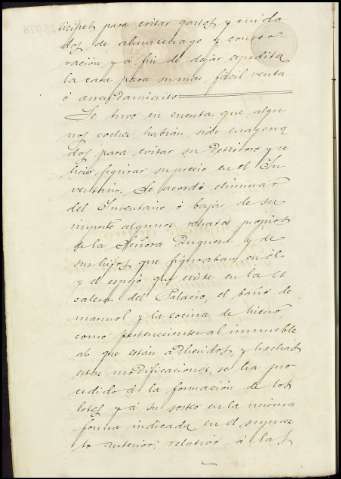 para evitar gastos y cuida
dos de almacenaje y conser-
vacion, y á fin de dejar espedita
la casa para su mas fácil venta
ó arrendamiento
Se tuvo en cuenta que algu
nos coches habian sido enagena
dos para evitar su deterioro y se
hizo figurar su precio en el In
ventario. Se acordó eliminar
del Inventario ó bajar de su
importe algunos retratos propios
de la Señora Duquesa y de
sus hijos que figuraban en él
y el espejo que existe en la es
calera del Palacio, el baño de
marmol y la cocina de hierro,
como pertenecientes al inmueble
al que están adheridos, y hechas
estas modificaciones, se ha pro
cedido á la formación de los
lotes y á su sorteo en la misma
forma indicada en el supues
to anterior, relativo á la